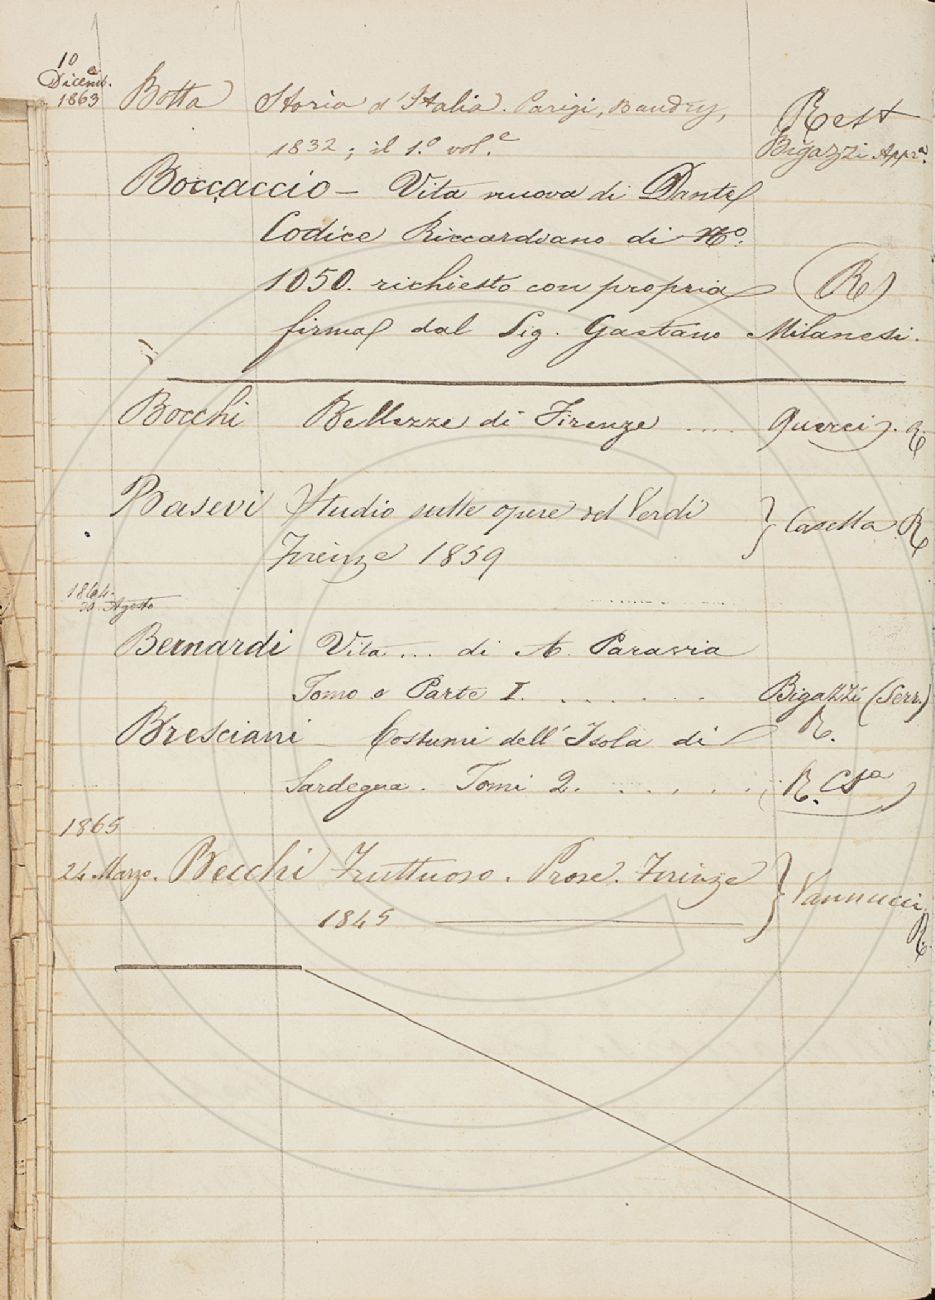 10
Dicemb.e
1863 Botta Storia d'Italia. Parigi, Baudry, Rest
1832; il 1.º vol.e Bigazzi Appr.a
Boccaccio – Vita nuova di Dante
Codice Riccardiano di Nº.
1050. richiesto con propria (R)
firma dal Sig. Gaetano Milanesi.
Bocchi Bellezze di Firenze .... Querci. R.
Basevi Studio sulle opere del Verdi } Casella R
Firenze 1859
1864.
30. Agosto
Bernardi Vita... di A. Paravia
Tomo o Parte I. . . . . . . . Bigazzi (Serr.)
Bresciani – Costumi dell'Isola di R.
Sardegna. Tomi 2. . . . . . . R. Csa
1865
24 Marzo. Becchi Fruttuoso. Prose. Firenze } Vannucci.
1845 R.